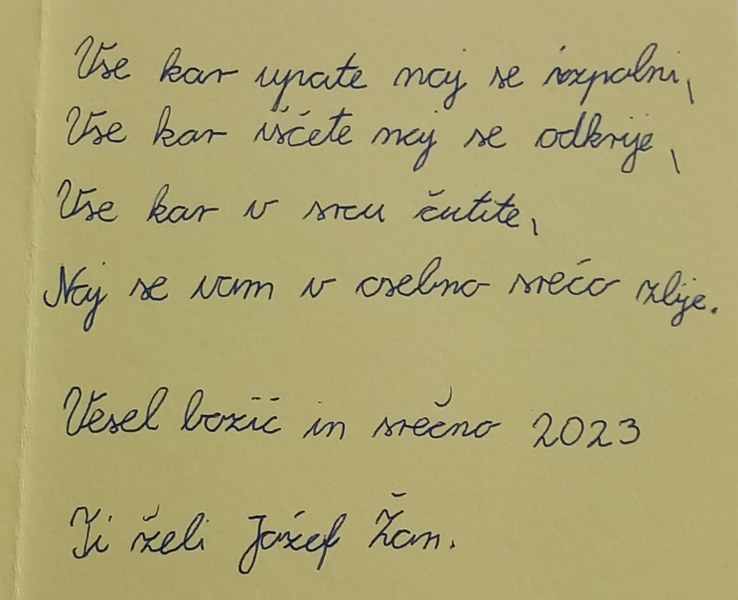 Vse kar upate naj se izpolni,
Vse kar iščete naj se odkrije,
Vse kar v srcu čutite,
Naj se vam v osebno srečo zlije.
Vesel božič in srečno 2023
Ti želi Jožef Žan.